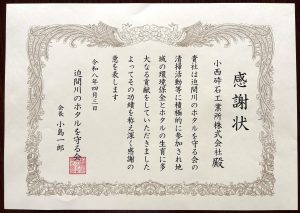 感謝状
小西砕石工業所株式会社殿
貴社は迫間川のホタルを守る会の
清掃活動等に積極的に参加され地
域の環境保全とホタルの生育に多
大なる貢献をしていただきました
よってその功績を称え深く感謝の
意を表します
令和八年四月三日
迫間川のホタルを守る会
会長 小島一郎